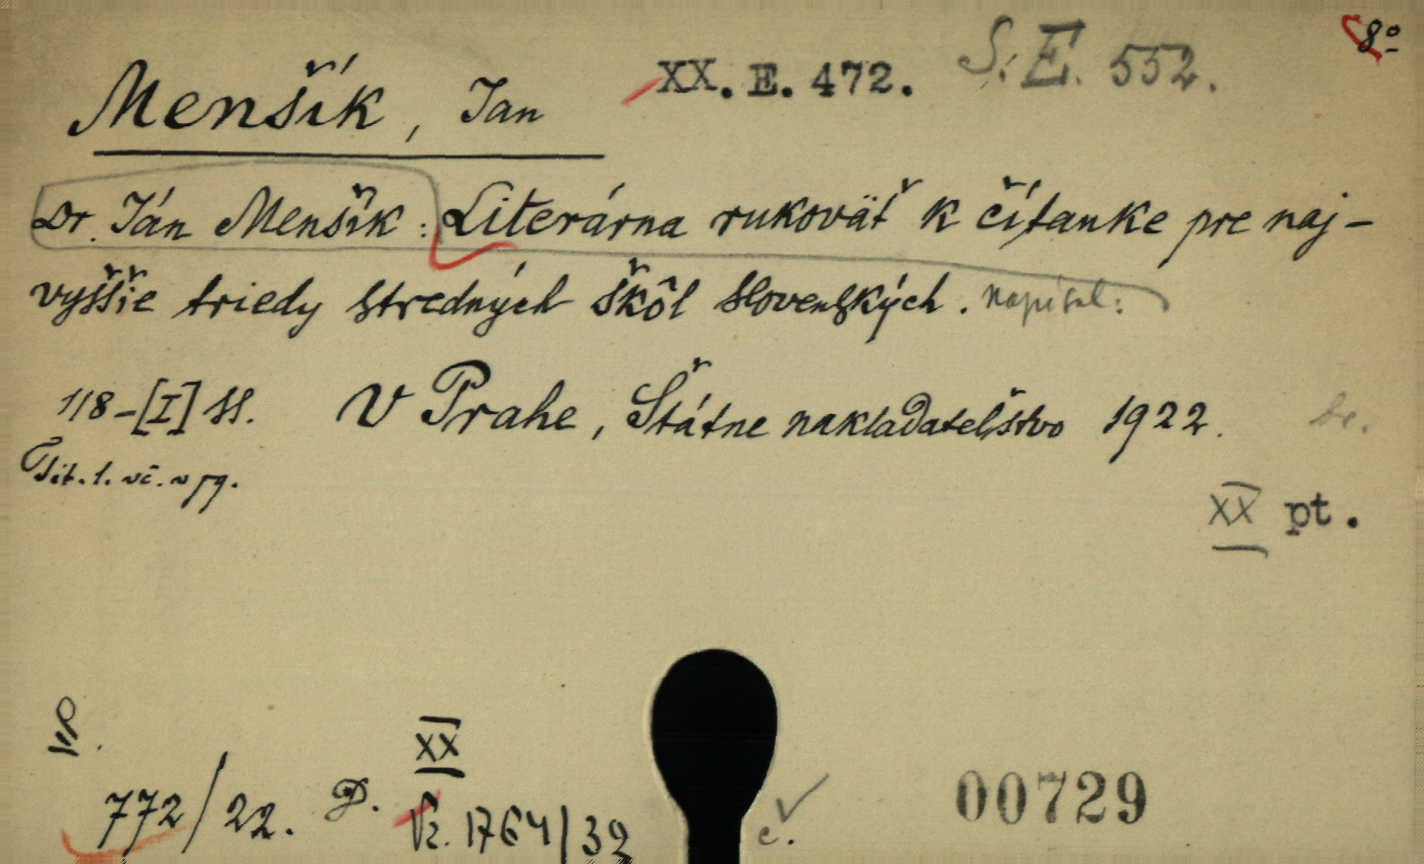 8º
Menšík, Jan XX. E. 472. S. E. 552.
Dr. Ján Menšík: Literárna rukoväť k čítanke pre naj-
vyššie triedy stredných škôl slovenských. napísal:
118-[I] ss. V Prahe, Štátne nakladatelštvo 1922.
Tit. l. vč. v pg.
XX pt.
XX
772/22. D. Vz. 1764/32 c. 00729